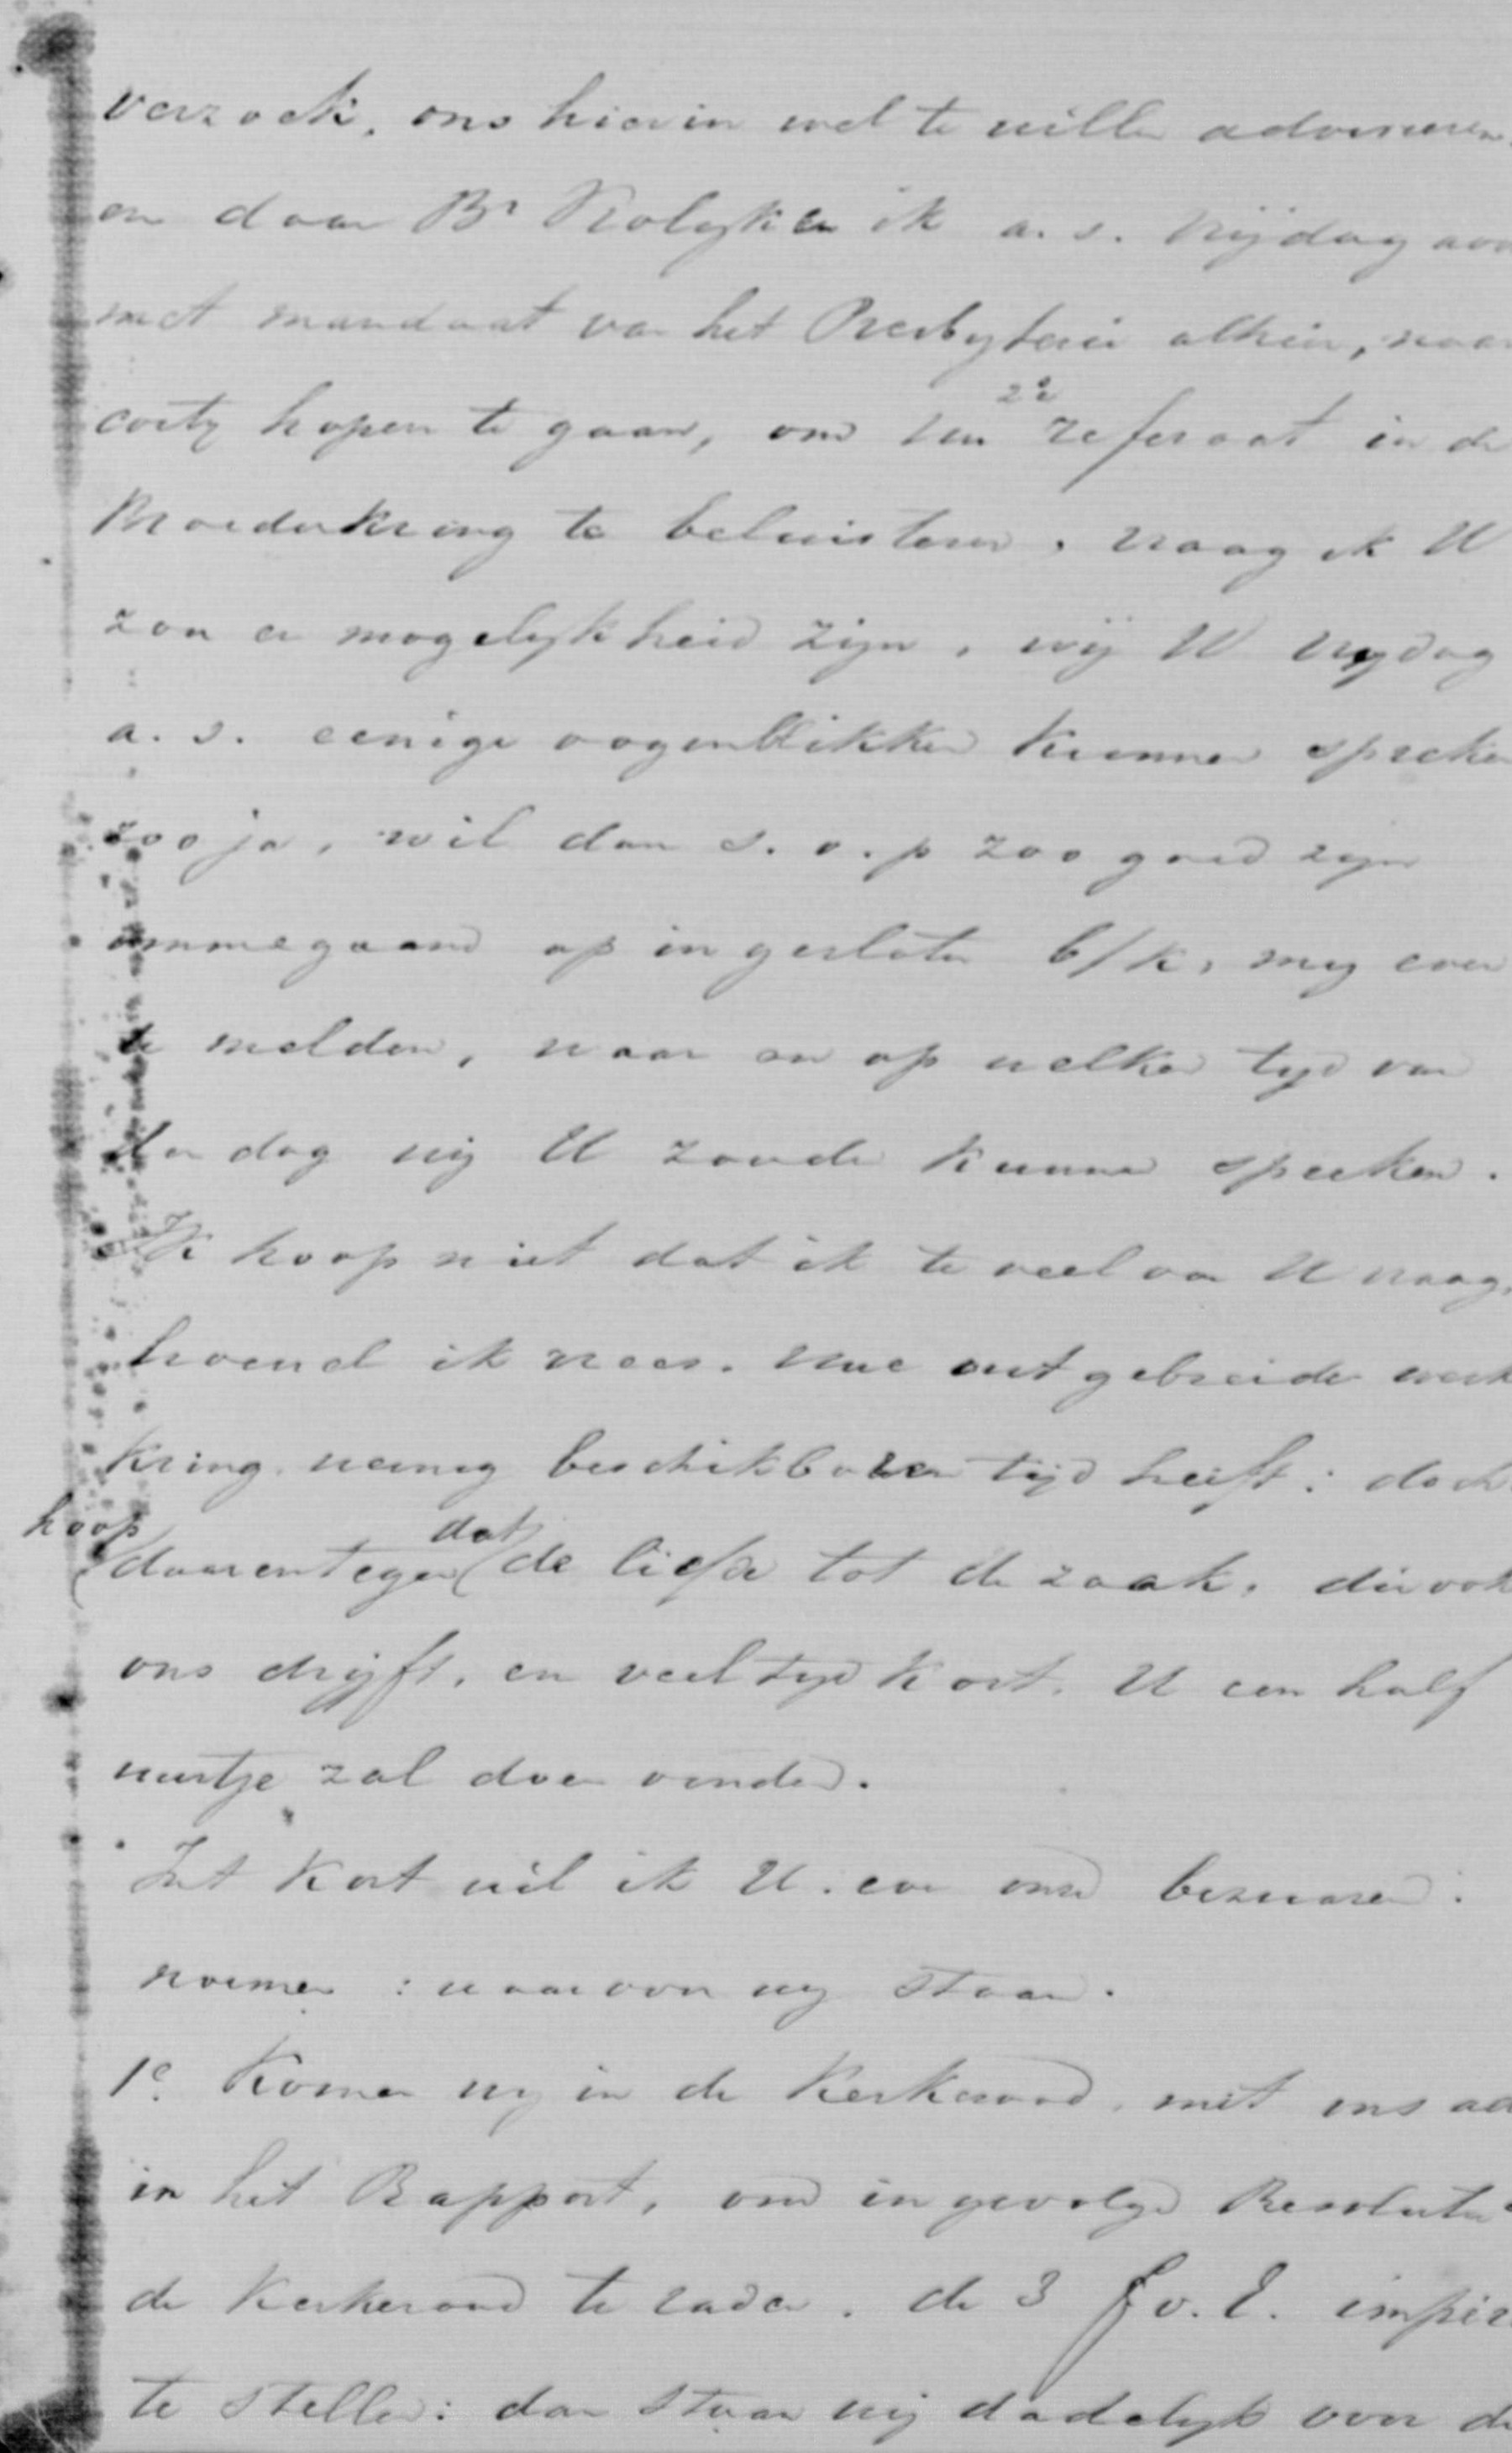 verzoek, ons hierin wel te willen adviseeren.
en daar Br Kolyk en ik a. s. vrijdag avo
met mandaat van het Presbyterie alhier, naar
hopen te gaan, om Uw 2e referaat in de
Broederkring te beluisteren, vraag ik U
zou er mogelykheid zijn, wij U vrydag
a. s. eenige oogenblikken kunnen spreken
zoo ja, wil dan s. v. p zoo goed zyn
ommegaand op ingesloten b/k, my even
te melden, waar en op welken tyd van
den dag wij U zoude kunnen spreeken.
Ik hoop niet dat ik te veel van U vraag,
hoewel ik vrees. Uwe uitgebreide werk
kring weinig beschikbaren tijd heeft: doch
hoop daarentegen dat de liefde tot de zaak, die ook
ons drijft, en veel tyd kost. U een half
uurtje zal doen vinden.
In't kort wil ik U. even onze bezwaren:
noemen: waarvoor wy staan.
1e. Komen wy in de Kerkeraad, met ons ad
in het Rapport, om ingevolge Resolutie
de Kerkeraad te raden. de 3 f v. E.
te stellen: dan staan wij dadelyk voor de